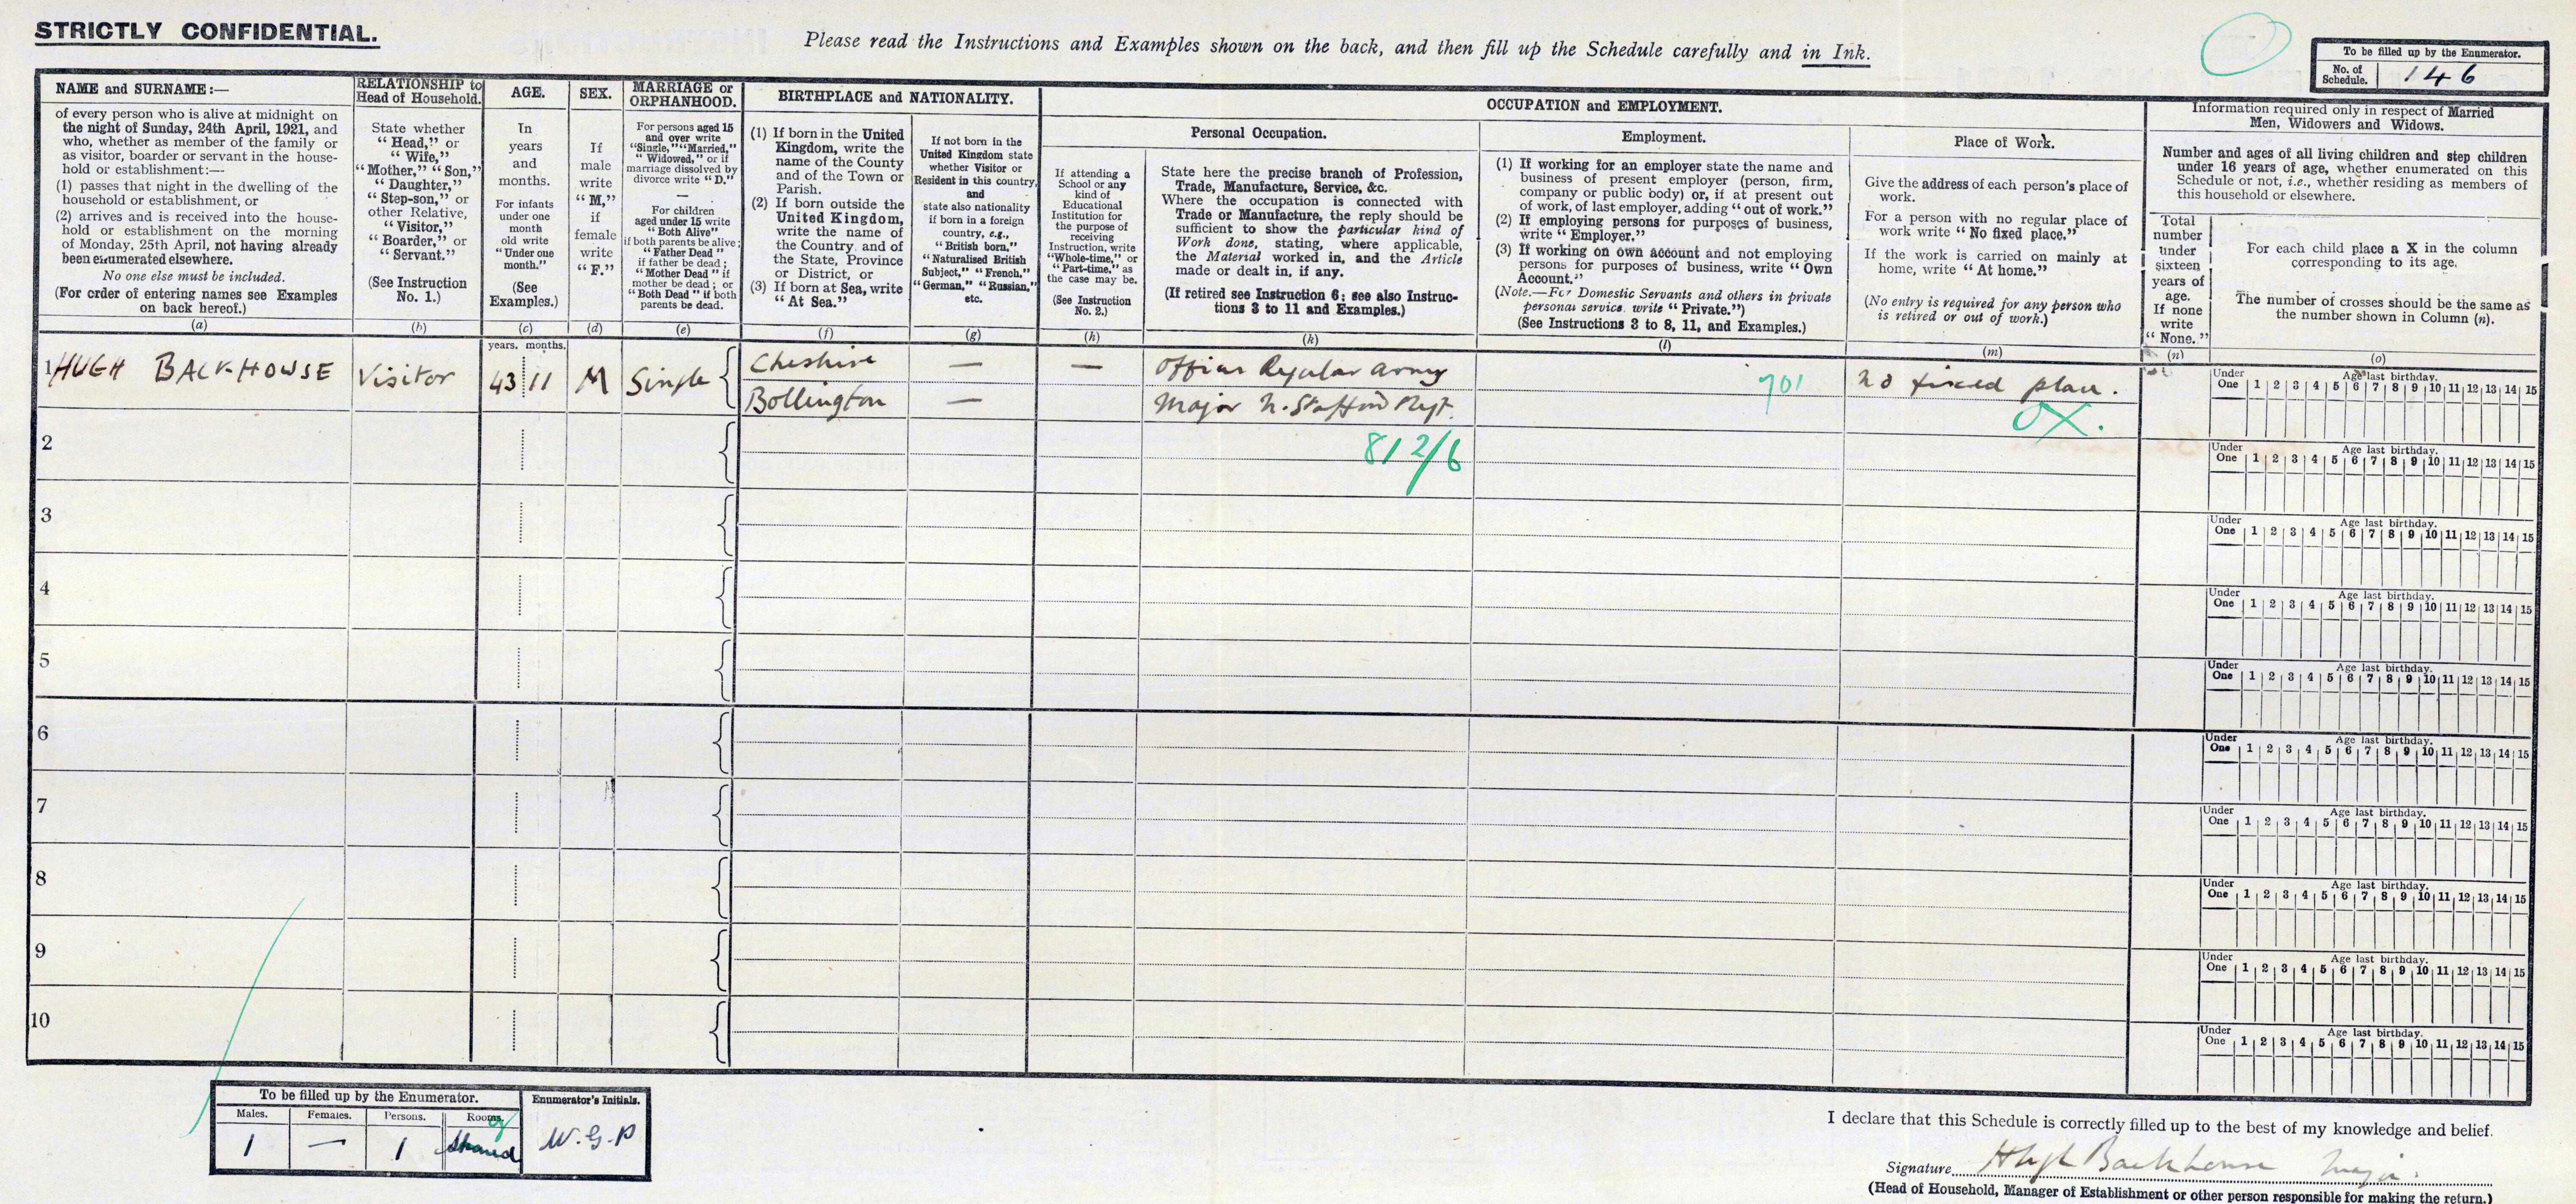 STRICTLY CONFIDENTIAL.
Please read the Instructions and Examples shown on the back, and then fill up the Schedule carefully and in Ink.
To be filled up by the Enumerator.
No. of Schedule. 146
NAME and SURNAME:—
of every person who is alive at midnight on
the night of Sunday, 24th April, 1921, and
who, whether as member of the family or
as visitor, boarder or servant in the house-
hold or establishment:—
(1) passes that night in the dwelling of the
household or establishment, or
(2) arrives and is received into the house-
hold or establishment on the morning
of Monday, 25th April, not having already
been enumerated elsewhere.
No one else must be included.
(For order of entering names see Examples
on back hereof.)
(a)
RELATIONSHIP to
Head of Household.
State whether
“Head,” or
“Wife,”
“Mother,” “Son,”
“Daughter,”
“Step-son,” or
other Relative,
“Visitor,”
“Boarder,” or
“Servant.”
(See Instruction
No. 1.)
(b)
AGE.
In
years
and
months.
For infants
under one
month
old write
“Under one
month.”
(See
Examples.)
(c)
SEX.
If
male
write
“M,”
if
female
write
“F.”
(d)
MARRIAGE or
ORPHANHOOD.
For persons aged 15
and over write
“Single,” “Married,”
“Widowed,” or if
marriage dissolved by
divorce write “D.”
—
For children
aged under 15 write
“Both Alive”
if both parents be alive;
“Father Dead”
if father be dead;
“Mother Dead” if
mother be dead; or
“Both Dead” if both
parents be dead.
(e)
BIRTHPLACE and NATIONALITY.
(1) If born in the United
Kingdom, write the
name of the County
and of the Town or
Parish.
(2) If born outside the
United Kingdom,
write the name of
the Country and of
the State, Province
or District, or
(3) If born at Sea, write
“At Sea.”
(f)
If not born in the
United Kingdom state
whether Visitor or
Resident in this country,
and
state also nationality
if born in a foreign
country, e.g.,
“British born,”
“Naturalised British
Subject,” “French,”
“German,” “Russian,”
etc.
(g)
OCCUPATION and EMPLOYMENT.
Personal Occupation.
If attending a
School or any
kind of
Educational
Institution for
the purpose of
receiving
Instruction, write
“Whole-time,” or
“Part-time,” as
the case may be.
(See Instruction
No. 2.)
(h)
State here the precise branch of Profession,
Trade, Manufacture, Service, &c.
Where the occupation is connected with
Trade or Manufacture, the reply should be
sufficient to show the particular kind of
Work done, stating, where applicable,
the Material worked in, and the Article
made or dealt in, if any.
(If retired see Instruction 6; see also Instruc-
tions 3 to 11 and Examples.)
(k)
Employment.
(1) If working for an employer state the name and
business of present employer (person, firm,
company or public body) or, if at present out
of work, of last employer, adding “out of work.”
(2) If employing persons for purposes of business,
write “Employer.”
(3) If working on own account and not employing
persons for purposes of business, write “Own
Account.”
(Note.—For Domestic Servants and others in private
personal service, write “Private.”)
(See Instructions 3 to 8, 11, and Examples.)
(l)
Place of Work.
Give the address of each person's place of
work.
For a person with no regular place of
work write “No fixed place.”
If the work is carried on mainly at
home, write “At home.”
(No entry is required for any person who
is retired or out of work.)
(m)
Information required only in respect of Married
Men, Widowers and Widows.
Number and ages of all living children and step children
under 16 years of age, whether enumerated on this
Schedule or not, i.e., whether residing as members of
this household or elsewhere.
Total
number
under
sixteen
years of
age.
If none
write
“None.”
(n)
For each child place a X in the column
corresponding to its age.
The number of crosses should be the same as
the number shown in Column (n).
(o)
years. months.
1 HUGH BACKHOUSE Visitor 43 11 M Single Cheshire — — Officer Regular Army 901 No fixed place.
Bollington — Major N. Stafford Regt. OX.
812/6
Under One Age last birthday. 1 2 3 4 5 6 7 8 9 10 11 12 13 14 15
2
Under One Age last birthday. 1 2 3 4 5 6 7 8 9 10 11 12 13 14 15
3
Under One Age last birthday. 1 2 3 4 5 6 7 8 9 10 11 12 13 14 15
4
Under One Age last birthday. 1 2 3 4 5 6 7 8 9 10 11 12 13 14 15
5
Under One Age last birthday. 1 2 3 4 5 6 7 8 9 10 11 12 13 14 15
6
Under One Age last birthday. 1 2 3 4 5 6 7 8 9 10 11 12 13 14 15
7
Under One Age last birthday. 1 2 3 4 5 6 7 8 9 10 11 12 13 14 15
8
Under One Age last birthday. 1 2 3 4 5 6 7 8 9 10 11 12 13 14 15
9
Under One Age last birthday. 1 2 3 4 5 6 7 8 9 10 11 12 13 14 15
10
Under One Age last birthday. 1 2 3 4 5 6 7 8 9 10 11 12 13 14 15
To be filled up by the Enumerator.
Enumerator's Initials.
Males. Females. Persons. Rooms.
1 — 1 Shared W.G.P
I declare that this Schedule is correctly filled up to the best of my knowledge and belief.
Signature Hugh Backhouse Major.
(Head of Household, Manager of Establishment or other person responsible for making the return.)